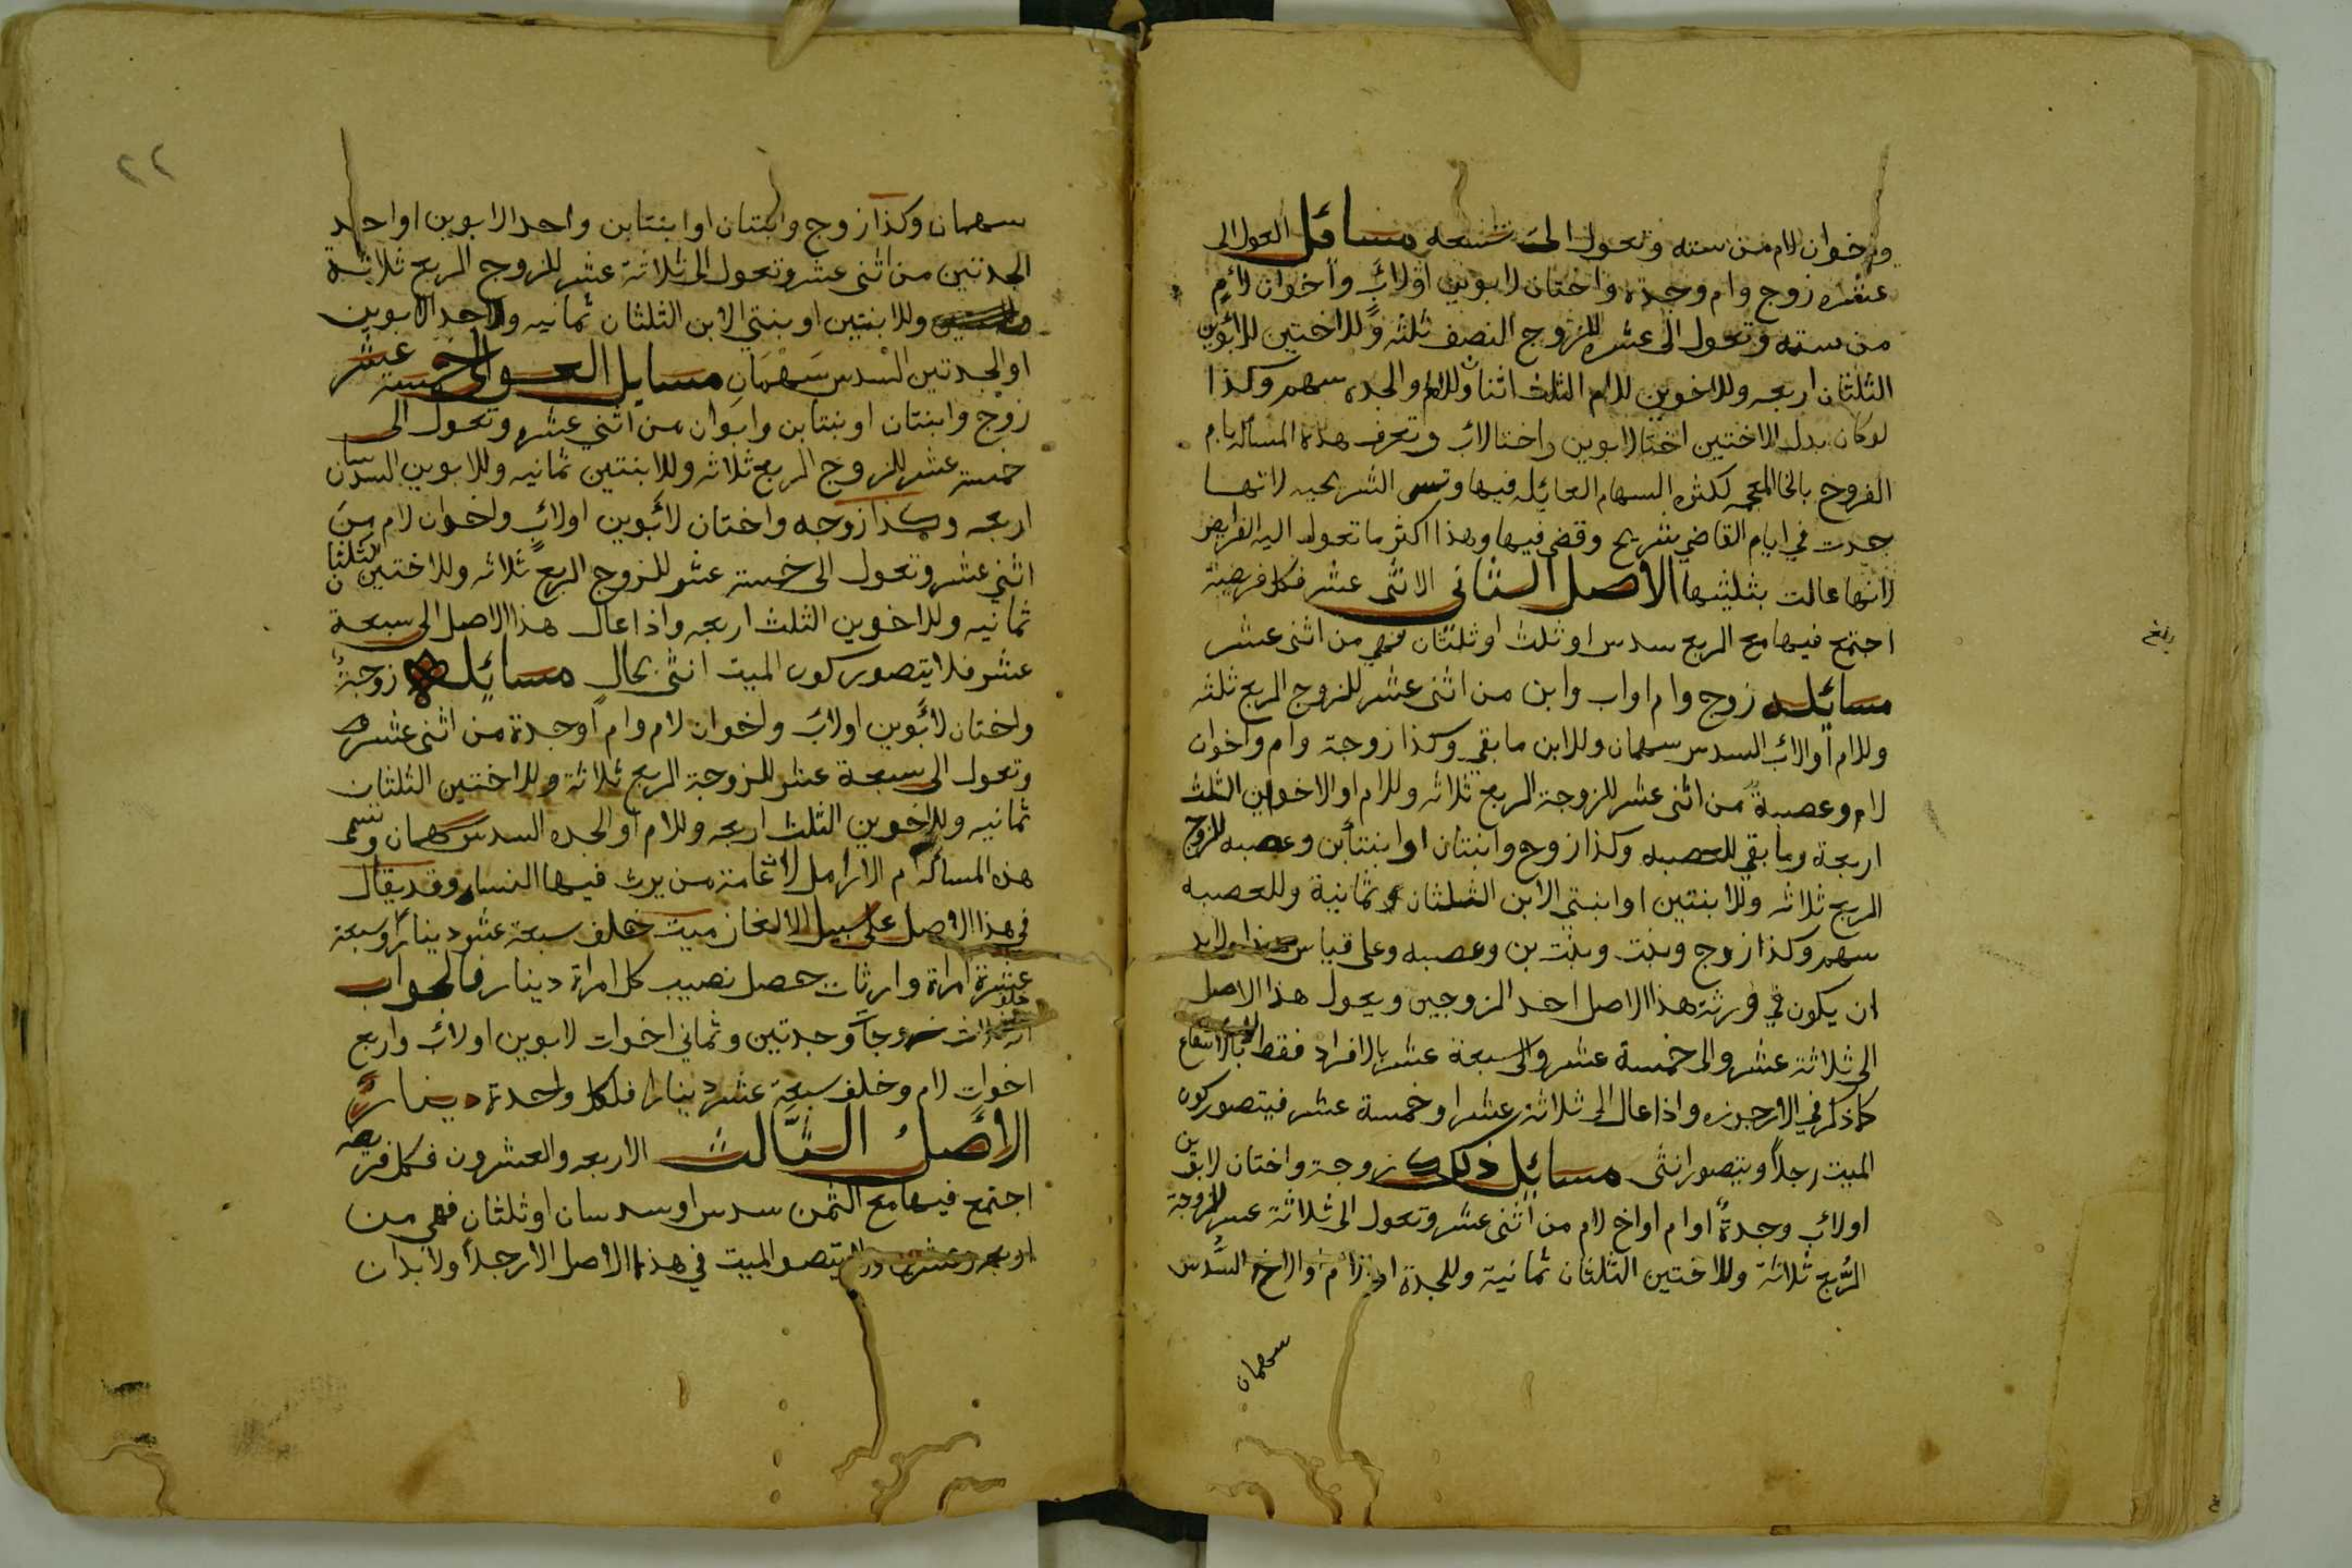 واخوان لام من سته وتعول الى تسعه مسائل العول الى
عشره زوج وام وجدة واختان لابوين اولاب واخوان لام
من سته وتعول الى عشره للزوج النصف ثلثه وللاختين للابوين
الثلثان اربعه وللاخوين للام الثلث اثنان وللام والجده سهم وكذا
لوكان بدل الاختين اختا لابوين واختا لاب وتعرف هذه المسأله بام
الفروخ بالخا المعجمه لكثره السهام العائله فيها وتسمى الشريحيه لانها
حدت في ايام القاضي شريح وقضى فيها وهذا اكثر ما تعول اليه الفرايض
لانها عالت بثلثيها الاصل الثاني الاثنى عشر فكل فريضة
اجتمع فيها مع الربع سدس او ثلث او ثلثان فهي من اثنى عشر
مسائله زوج وام اواب وابن من اثنى عشر للزوج الربع ثلثه
وللام اوالاب السدس سهمان وللابن ما بقي وكذا زوجة وام واخوان
لام وعصبة من اثنى عشر للزوجة الربع ثلاثه وللام اوالاخوين الثلث
اربعة وما بقي للعصبه وكذا زوج وابنتان اوابنتا بن وعصبه للزوج
الربع ثلاثه وللابنتين اوابنتي الابن الثلثان ثمانية وللعصبه
سهم وكذا زوج وبنت وبنت بن وعصبه وعلى قياس هذا ولابد
ان يكون في ورثة هذا الاصل احد الزوجين ويعول هذا الاصل
الى ثلاثة عشر والى خمسة عشر والى سبعة عشر بالافراد فقط
كما ذكر في الارجوزه واذا عال الى ثلاثة عشر او خمسة عشر فيتصور كون
الميت رجلاً ويتصور انثى مسائل ذلك زوجة واختان لابوين
اولاب وجدةٌ اوام اواخ لام من اثنى عشر وتعول الى ثلاثة عشر للزوجة
الرُّبع ثلاثة وللاختين الثلثان ثمانية وللجدة اوالام والاخ السُّدس
سهمان
بلغ
٢٢
سهمان وكذا زوج وابنتان اوابنتا بن واحد الابوين اواحد
الجدتين من اثنى عشر وتعول الى ثلاثة عشر للزوج الربع ثلاثة
وللابنتين اوبنتي الابن الثلثان ثمانيه ولاحد الابوين
اوالجدتين السدس سَهْمَان مسايل العول الى خمسة عشر
زوج وابنتان اوبنتا بن وابوان من اثني عشر وتعول الى
خمسة عشر للزوج الربع ثلاثه وللابنتين ثمانيه وللابوين السدسان
اربعه وكذا زوجه واختان لابوين اولاب واخوان لام من
اثني عشر وتعول الى خمسة عشر للزوج الربع ثلاثه وللاختين الثلثان
ثمانيه وللاخوين الثلث اربعه واذا عال هذا الاصل الى سبعة
عشر فلا يتصور كون الميت انثى بحال مسائله زوجة
واختان لابوين اولاب واخوان لام وام اوجدة من اثنى عشر
وتعول الى سبعة عشر للزوجة الربع ثلاثة وللاختين الثلثان
ثمانيه وللاخوين الثلث اربعه وللام اوالجده السدس سهمان وتسمى
هذه المسأله ام الارامل لان عامة من يرث فيها النساء وقد يقال
في هذا الاصل على سبيل الالغاز ميت خلف سبعة عشر ديناراً وسبعة
عشرة امراة وارثات حصل نصيب كل امراة دينار فالجواب
خلف ثلاث زوجات وجدتين وثماني اخوات لابوين اولاب واربع
اخوات لام وخلف سبعة عشر دينارا فلكل واحدة دينارٌ
الاصلُ الثالث الاربعه والعشرون فكل فريضه
اجتمع فيها مع الثمن سدس اوسدسان اوثلثان فهي من
اربعه وعشرين ولا يتصور الميت في هذا الاصل الا رجلاً ولابد ان